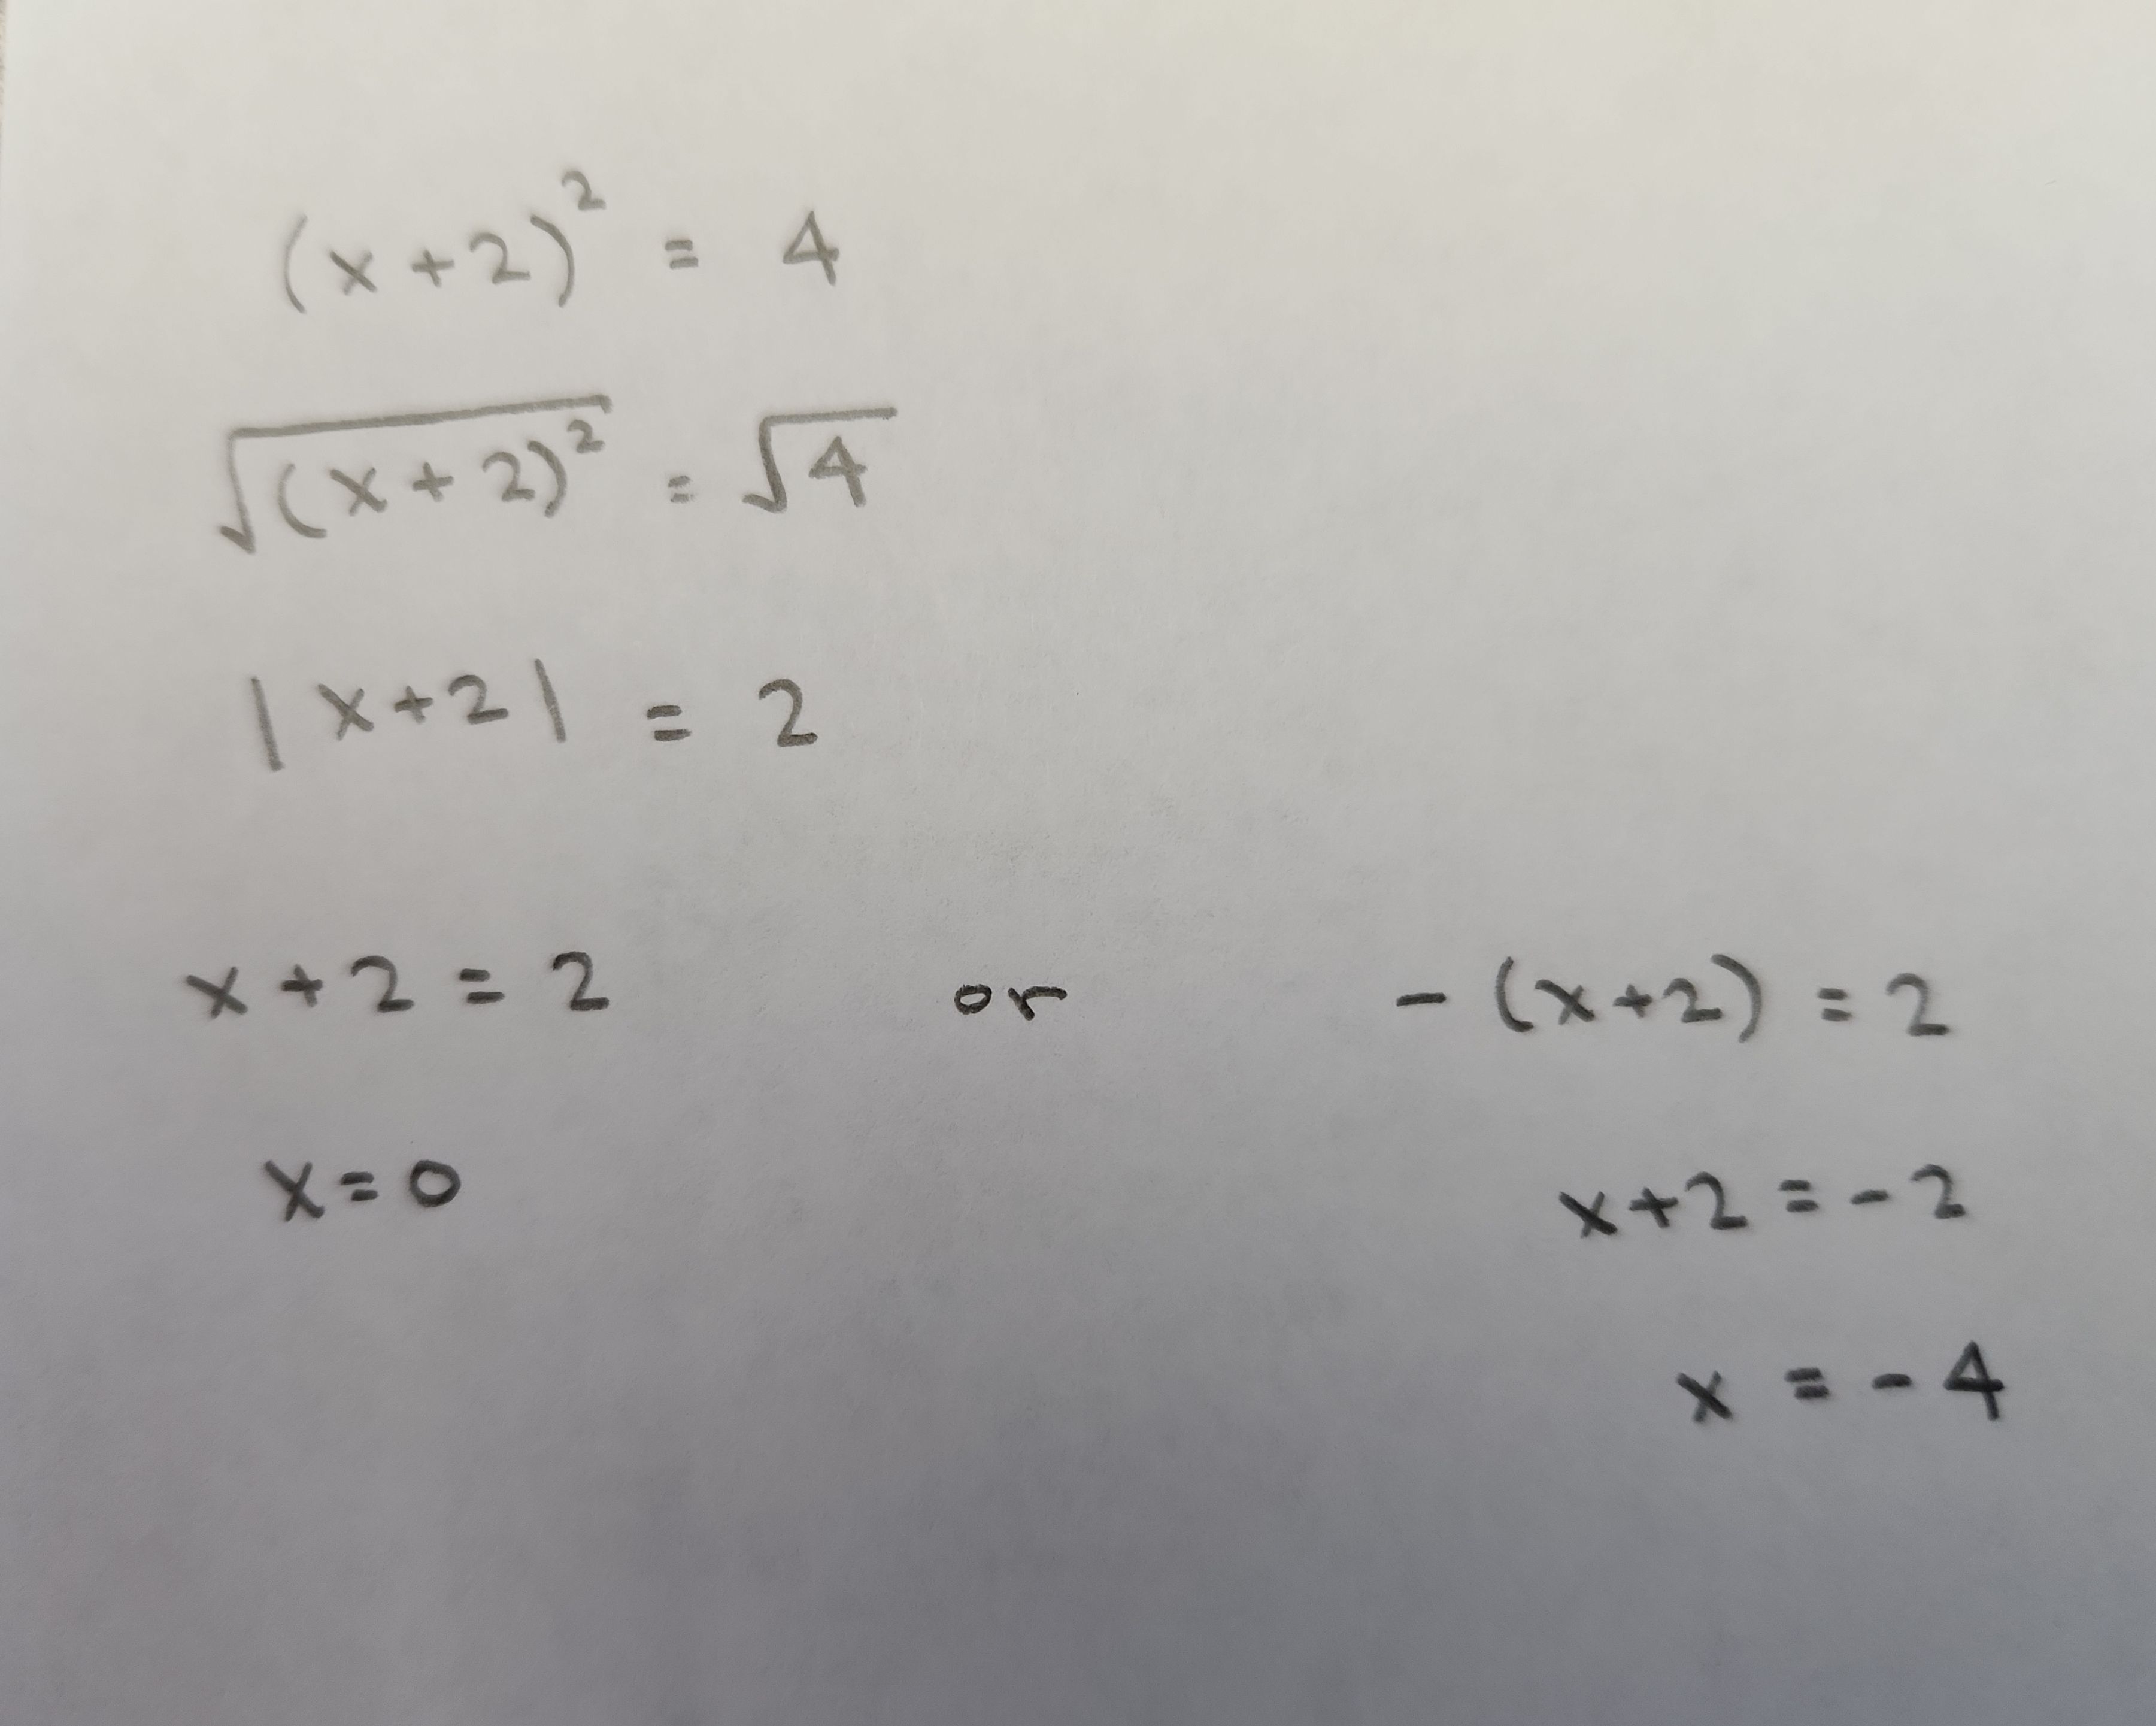 (x+2)² = 4
√(x+2)² = √4
|x+2| = 2
x+2=2 or -(x+2) = 2
x=0 x+2=-2
x = -4